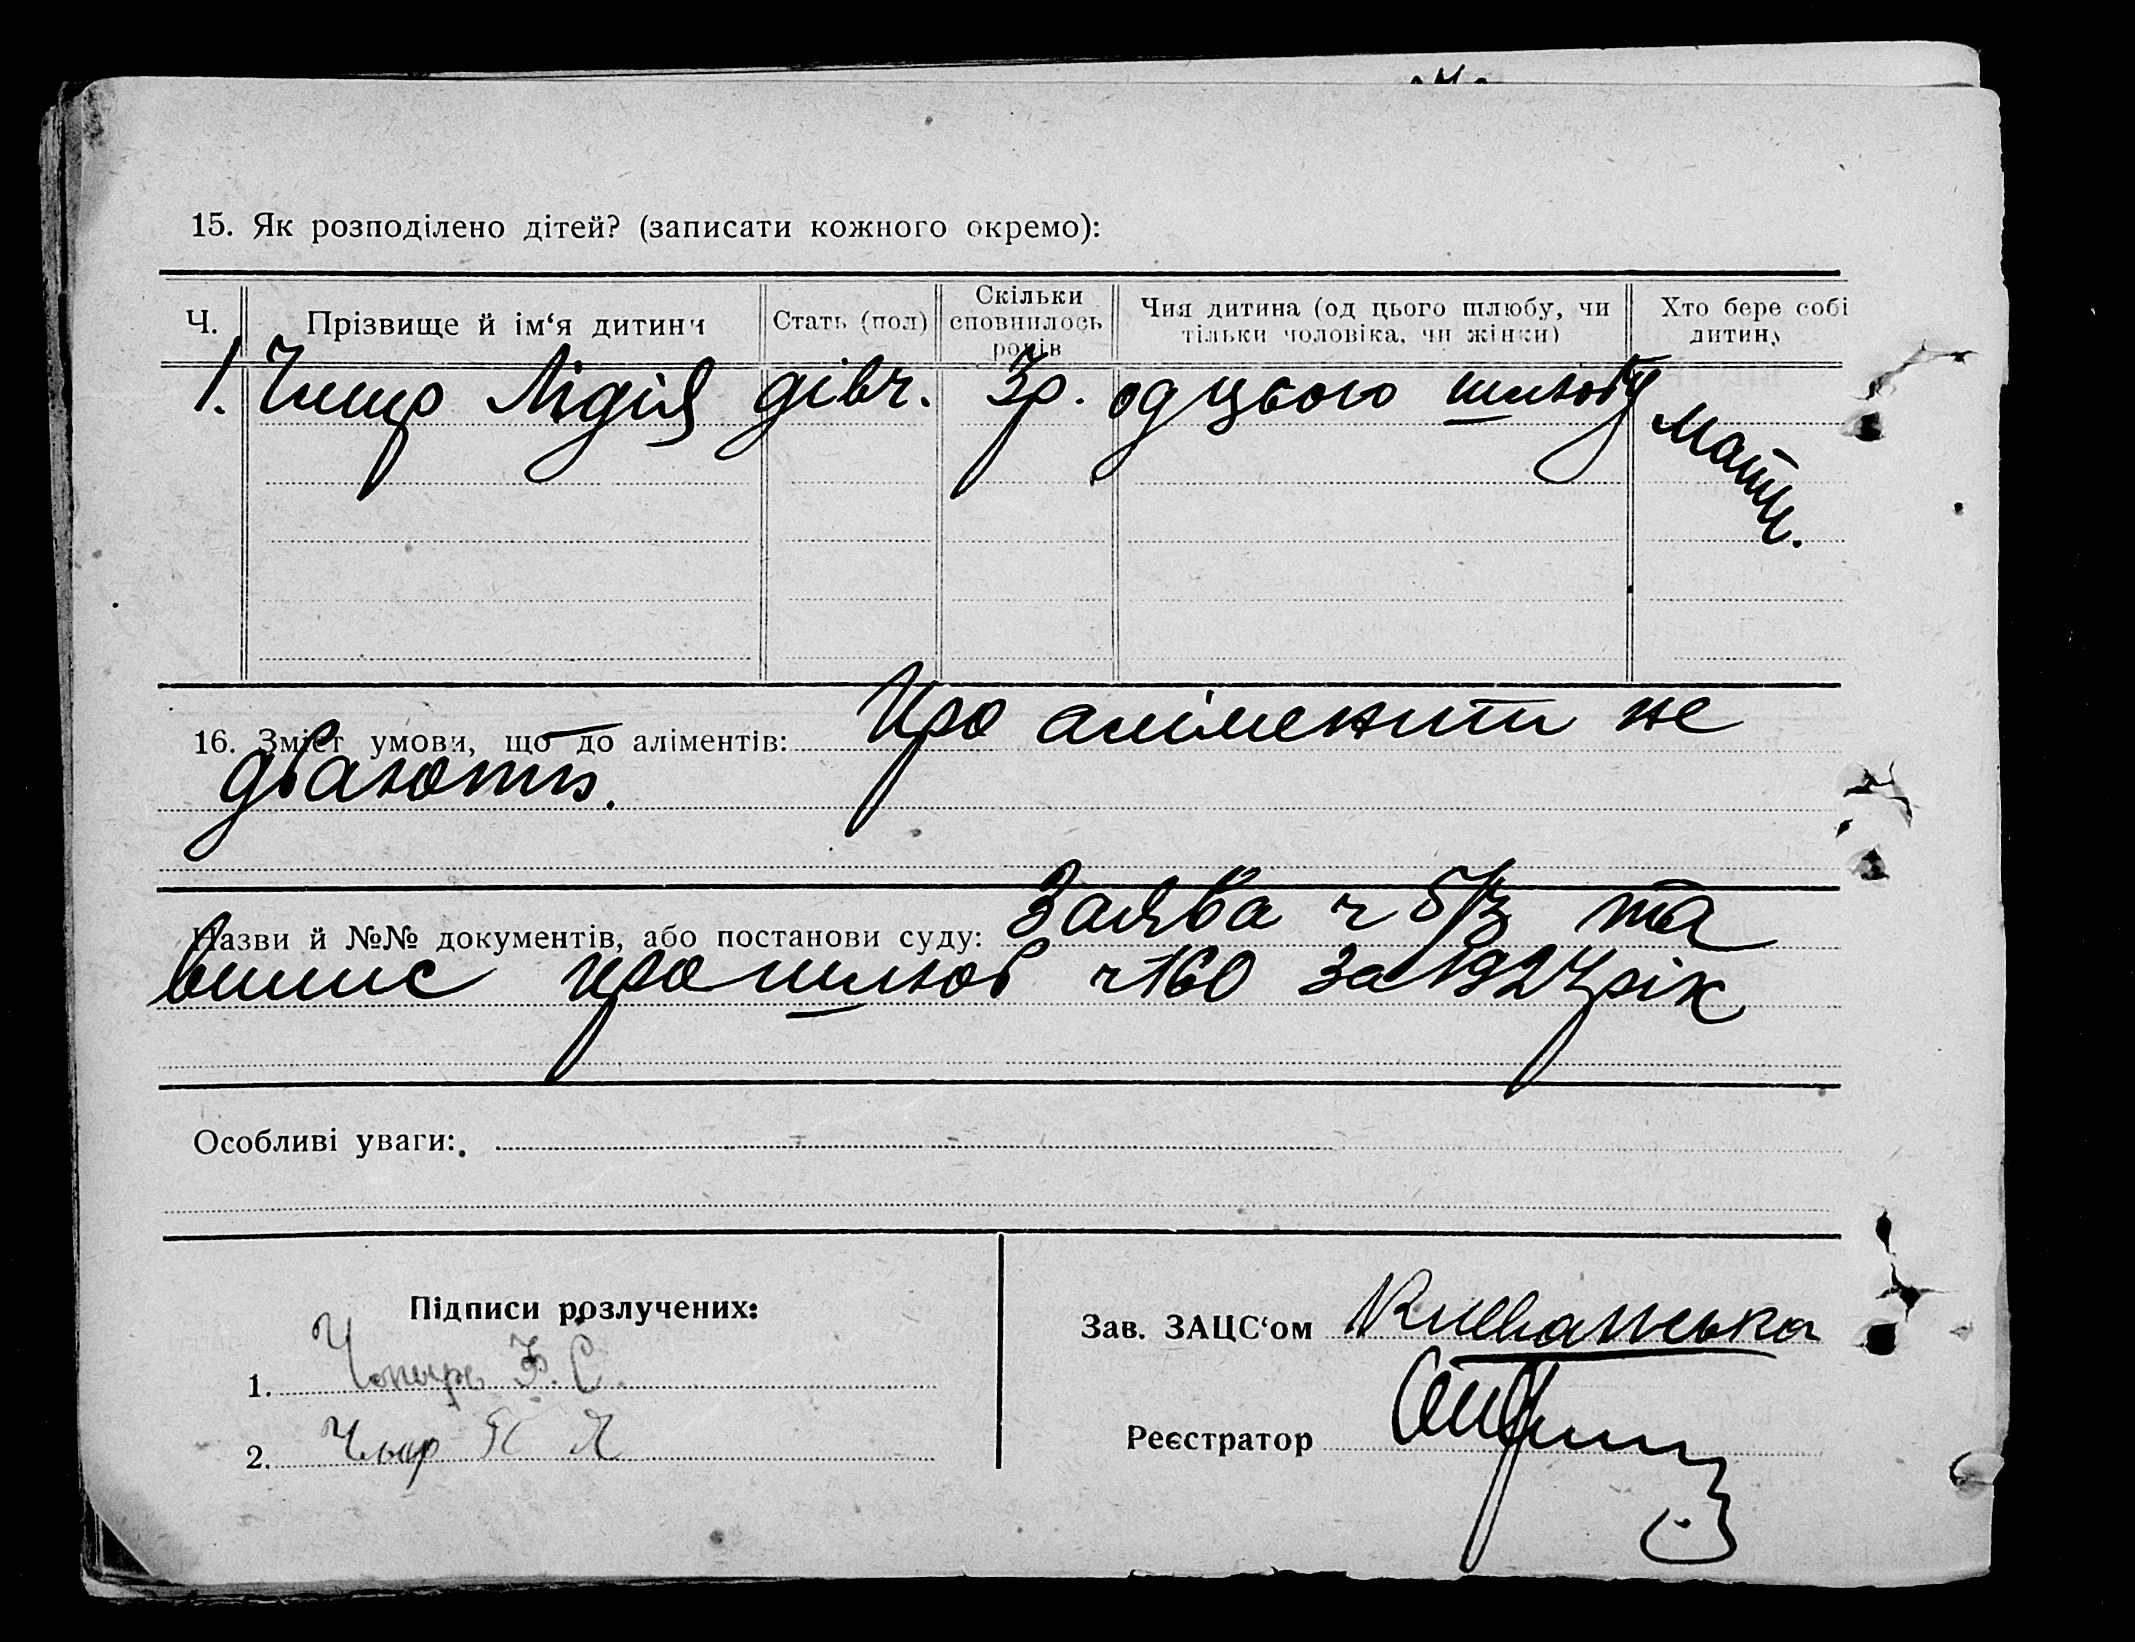 15. Як розподілено дітей? (записати кожного окремо):
Ч. Прізвище й ім‘я дитини Стать (пол) Скільки сповнилось років Чия дитина (од цього шлюбу, чи тільки чоловіка, чи жінки) Хто бере собі дитину
1. Лідія дівч. 3р. од цього шлюбу мати.
16. Зміст умови, що до аліментів: Про аліменти не
дбають.
Назви й №№ документів, або постанови суду: Заява ч та
випис про шлюб ч 160 за 1927 рік
Особливі уваги:
Підписи розлучених:
Зав. ЗАЦС‘ом
1.
Реєстратор
2.